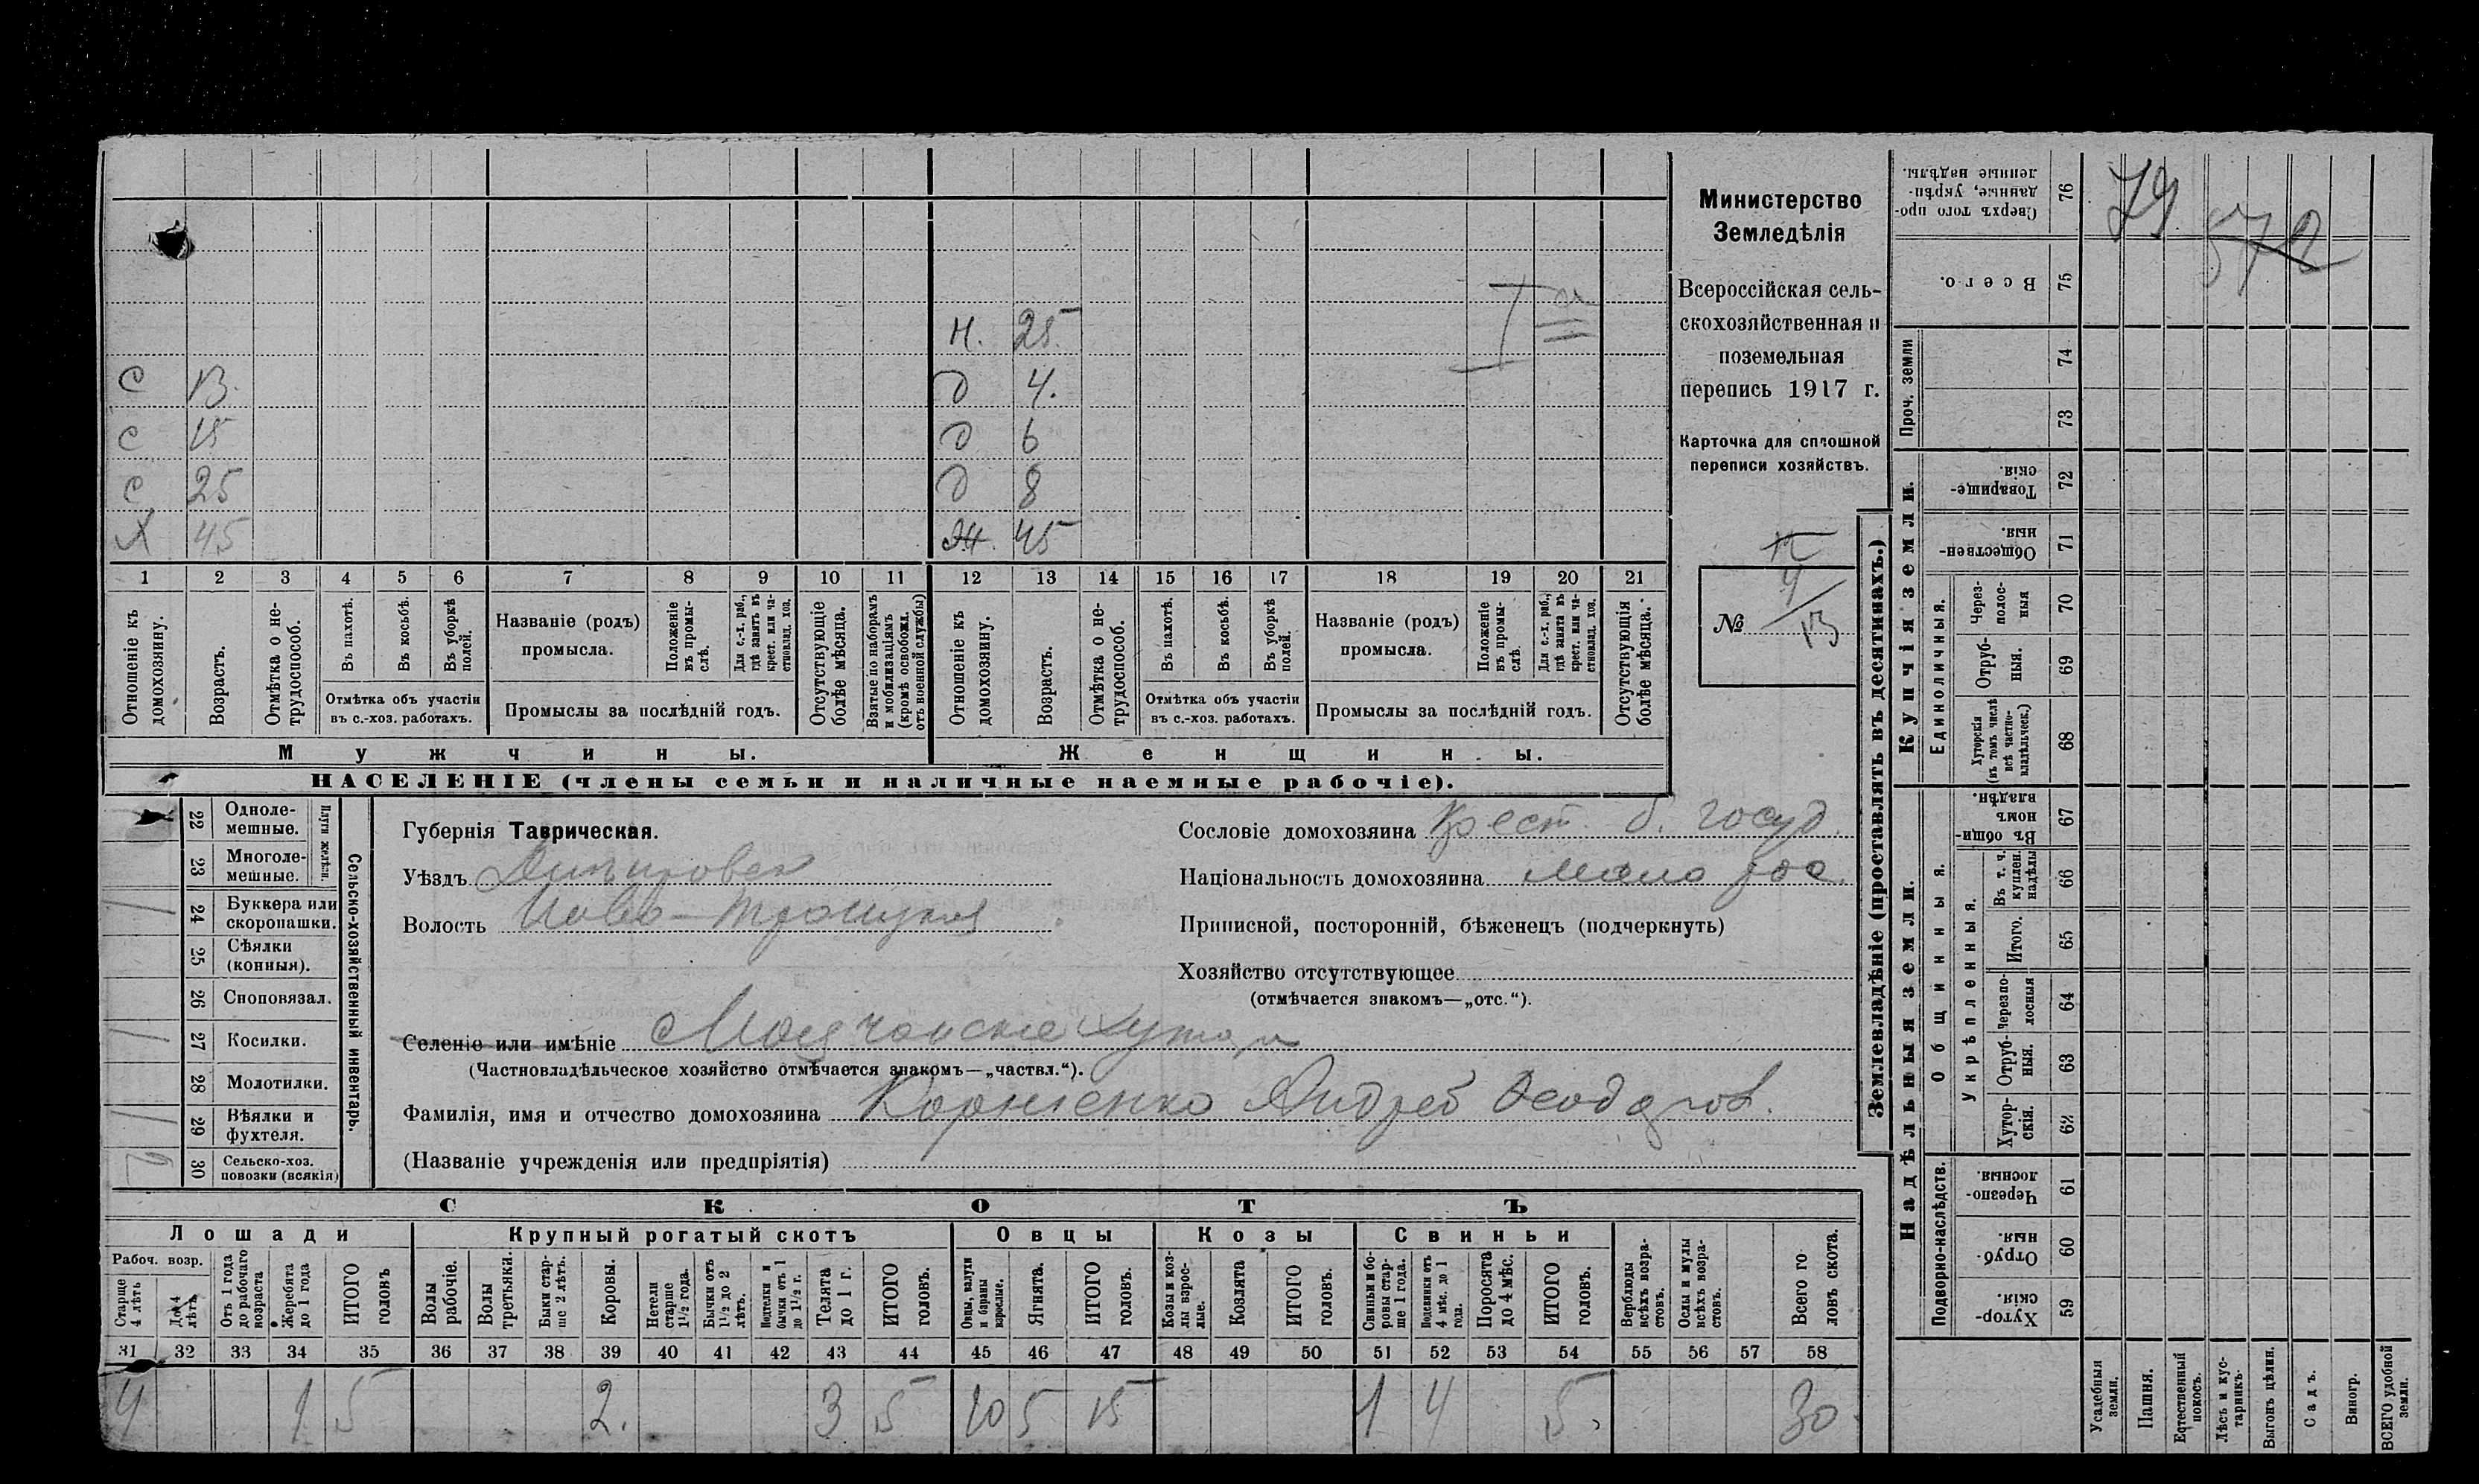 Министерство
Земледѣлія
Всероссійская сель-
скохозяйственная и
поземельная
перепись 1917 г.
Карточка для сплошной
переписи хозяйствъ.
№ 4/13
79
572
I a
Н. 25
С 13. Д 4.
С 15 Д 6
С 25 Д 8
Х 45 Ж. 45
1 2 3 4 5 6 7 8 9 10 11 12 13 14 15 16 17 18 19 20 21
Отношеніе къ домохозяину.
Возрастъ.
Отмѣтка о не-трудоспособ.
Въ пахотѣ.
Въ косьбѣ.
Въ уборкѣ полей.
Отмѣтка объ участіи
въ с.-хоз. работахъ.
Названіе (родъ)
промысла.
Положеніе въ промы-слѣ.
Для с.-х. раб., гдѣ занятъ въ крест. или ча-стновлад. хоз.
Промыслы за послѣдній годъ.
Отсутствующіе болѣе мѣсяца.
Взятые по наборамъ и мобилизаціямъ (кромѣ освобожд. отъ военной службы)
Отношеніе къ домохозяину.
Возрастъ.
Отмѣтка о не-трудоспособ.
Въ пахотѣ.
Въ косьбѣ.
Въ уборкѣ полей.
Отмѣтка объ участіи
въ с.-хоз. работахъ.
Названіе (родъ)
промысла.
Положеніе въ промы-слѣ.
Для с.-х. раб., гдѣ занята въ крест. или ча-стновлад. хоз.
Промыслы за послѣдній годъ.
Отсутствующія болѣе мѣсяца.
Мужчины. Женщины.
НАСЕЛЕНІЕ (члены семьи и наличные наемные рабочіе).
Сельско-хозяйственный инвентарь.
Плуги желѣзн.
22 Одноле-мешные.
23 Многоле-мешные.
24 Буккера или скоропашки. 1
25 Сѣялки (конныя).
26 Сноповязал.
27 Косилки. 1
28 Молотилки.
29 Вѣялки и фухтеля. 1
30 Сельско-хоз. повозки (всякія)
Губернія Таврическая.
Уѣздъ Днѣпровск
Волость Ново-Троицкая
Сословіе домохозяина Крест. б. госуд.
Національность домохозяина мало рос.
Приписной, посторонній, бѣженецъ (подчеркнуть)
Хозяйство отсутствующее
(отмѣчается знакомъ—„отс.“).
Селеніе или имѣніе
(Частновладѣльческое хозяйство отмѣчается знакомъ—„частвл.“).
Фамилія, имя и отчество домохозяина Корниенко Андрей Феодоров.
(Названіе учрежденія или предпріятія)
СКОТЪ
Лошади Крупный рогатый скотъ Овцы Козы Свиньи
Рабоч. возр.
Старше 4 лѣтъ
До 4 лѣтъ.
Отъ 1 года до рабочаго возраста
Жеребята до 1 года
ИТОГО головъ
Волы рабочіе.
Волы третьяки.
Быки стар-ше 2 лѣтъ.
Коровы.
Нетели старше 1½ года.
Бычки отъ 1½ до 2 лѣтъ.
бычки отъ 1 до 1½ г.
Телята до 1 г.
ИТОГО головъ.
Овцы, валухи и бараны взрослые.
Ягнята.
ИТОГО головъ.
Козы и коз-лы взрос-лые.
Козлята
ИТОГО головъ.
Свиньи и бо-ровы стар-ше 1 года.
Подсвинки отъ 4 мѣс. до 1 года.
Поросята до 4 мѣс.
ИТОГО головъ.
Верблюды всѣхъ возра-стовъ.
Ослы и мулы всѣхъ возра-стовъ.
Всего го-ловъ скота.
31 32 33 34 35 36 37 38 39 40 41 42 43 44 45 46 47 48 49 50 51 52 53 54 55 56 57 58
4 1 5 2. 3 5 10 5 15 1 4 5. 30
Землевладѣніе (проставлять въ десятинахъ.)
Надѣльныя земли. Купчія земли. Проч. земли
Подворно-наслѣдств.
Общинныя.
Укрѣпленныя.
Единоличныя.
76 Сверхъ того про-данные, укрѣп-ленные надѣлы.
75 Всего.
74
73
72 Товарище-скія.
71 Обществен-ныя
70 Через-полос-ныя
69 Отруб-ныя.
68 Хуторскія (въ томъ числѣ всѣ частно-владѣльческ.)
67 Въ общин-номъ владѣн.
66 Въ т. ч. куплен. надѣлы
65 Итого.
64 Черезпо-лосныя
63 Отруб-ныя.
62 Хутор-скія.
61 Черезпо-лосныя
60 Отруб-ныя.
59 Хутор-скія
Усадебныя земли.
Пашня.
Естественный покосъ.
Лѣсъ и кус-тарникъ.
Выгонъ цѣлин.
Садъ.
Виногр.
ВСЕГО удобной земли.